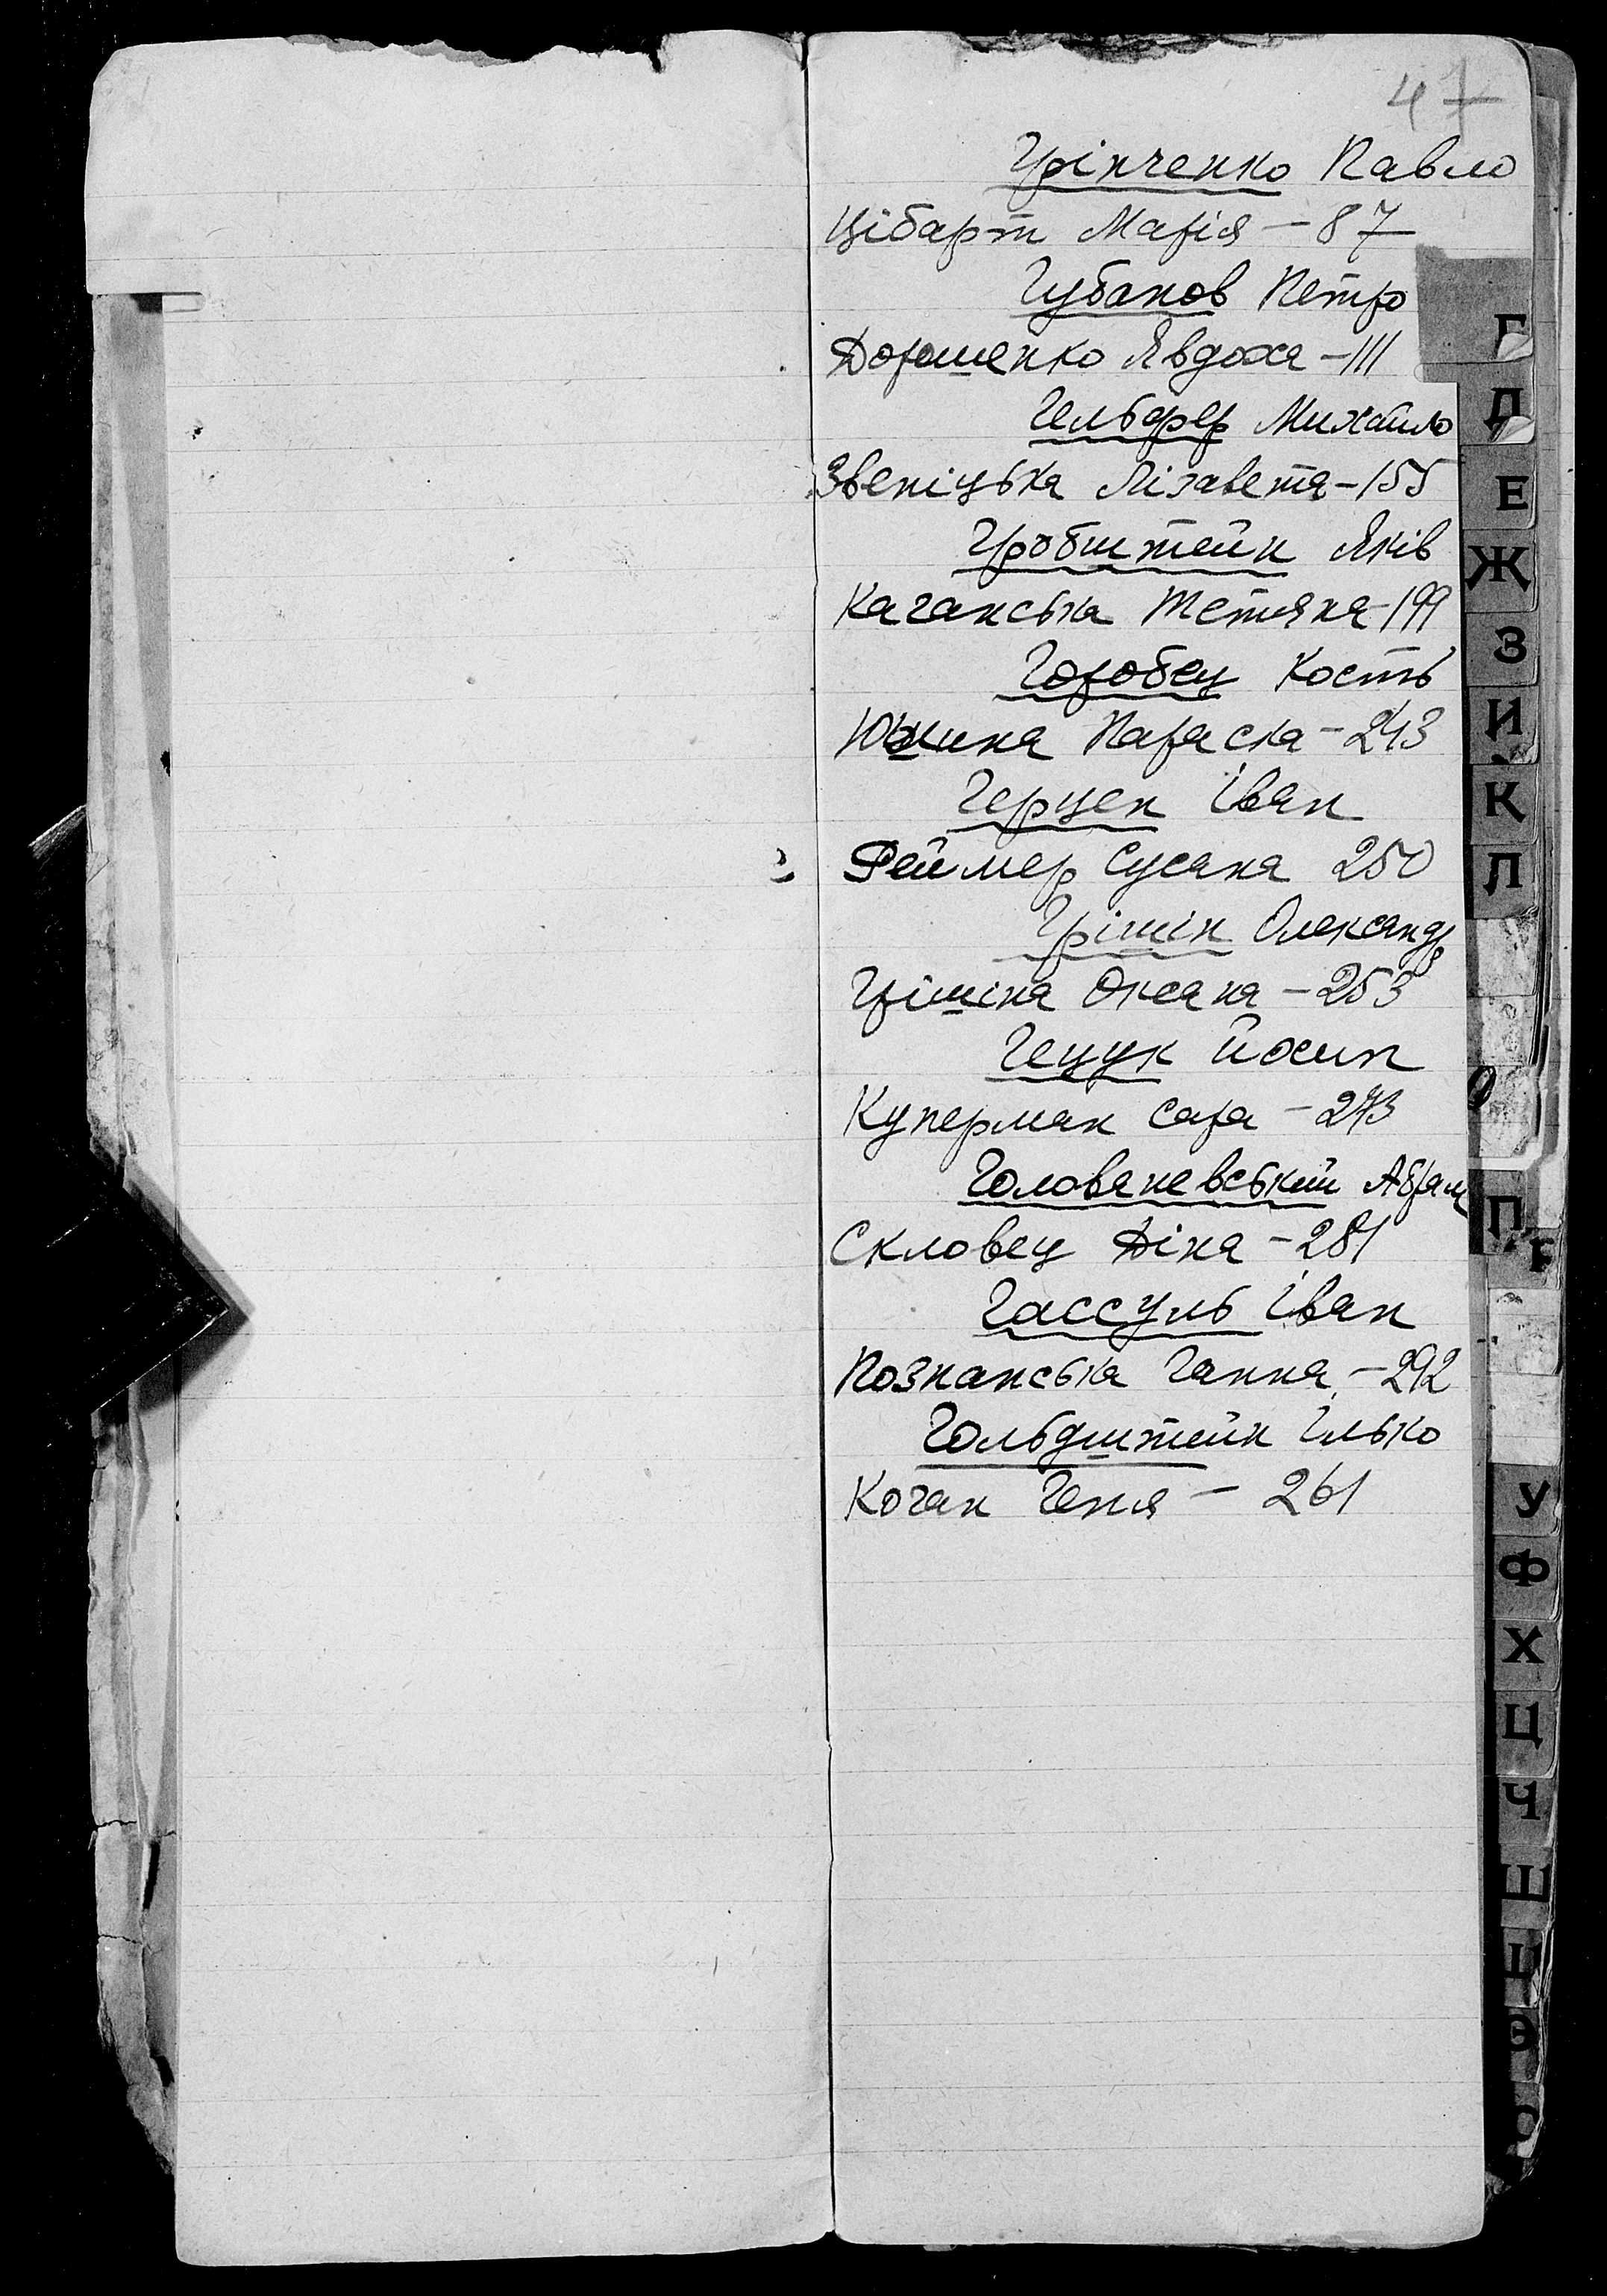 47
Грінченко Павло
Цібарт Марія – 87
Губанов Петро
Дорошенко Явдоха – 111
Гельфер Михайло
Звеніцька Лізавета – 155
Гробштейн Яків
Каганська Тетяна – 199
Горобец Кость
Параска – 243
Герцен Іван
Реймер Сусана 250
Грішін Олександр
Грішіна Оксана – 253
Гецук Йосип
Куперман Сара – 273
Голованевський Абрам
Скловец Діна – 281
Гассуль Іван
Познанська Ганна – 292
Гольдштейн Ілько
Коган Геня – 261
Г
Д
Е
Ж
З
И
К
Л
О
П
У
Ф
Х
Ц
Ч
Ш